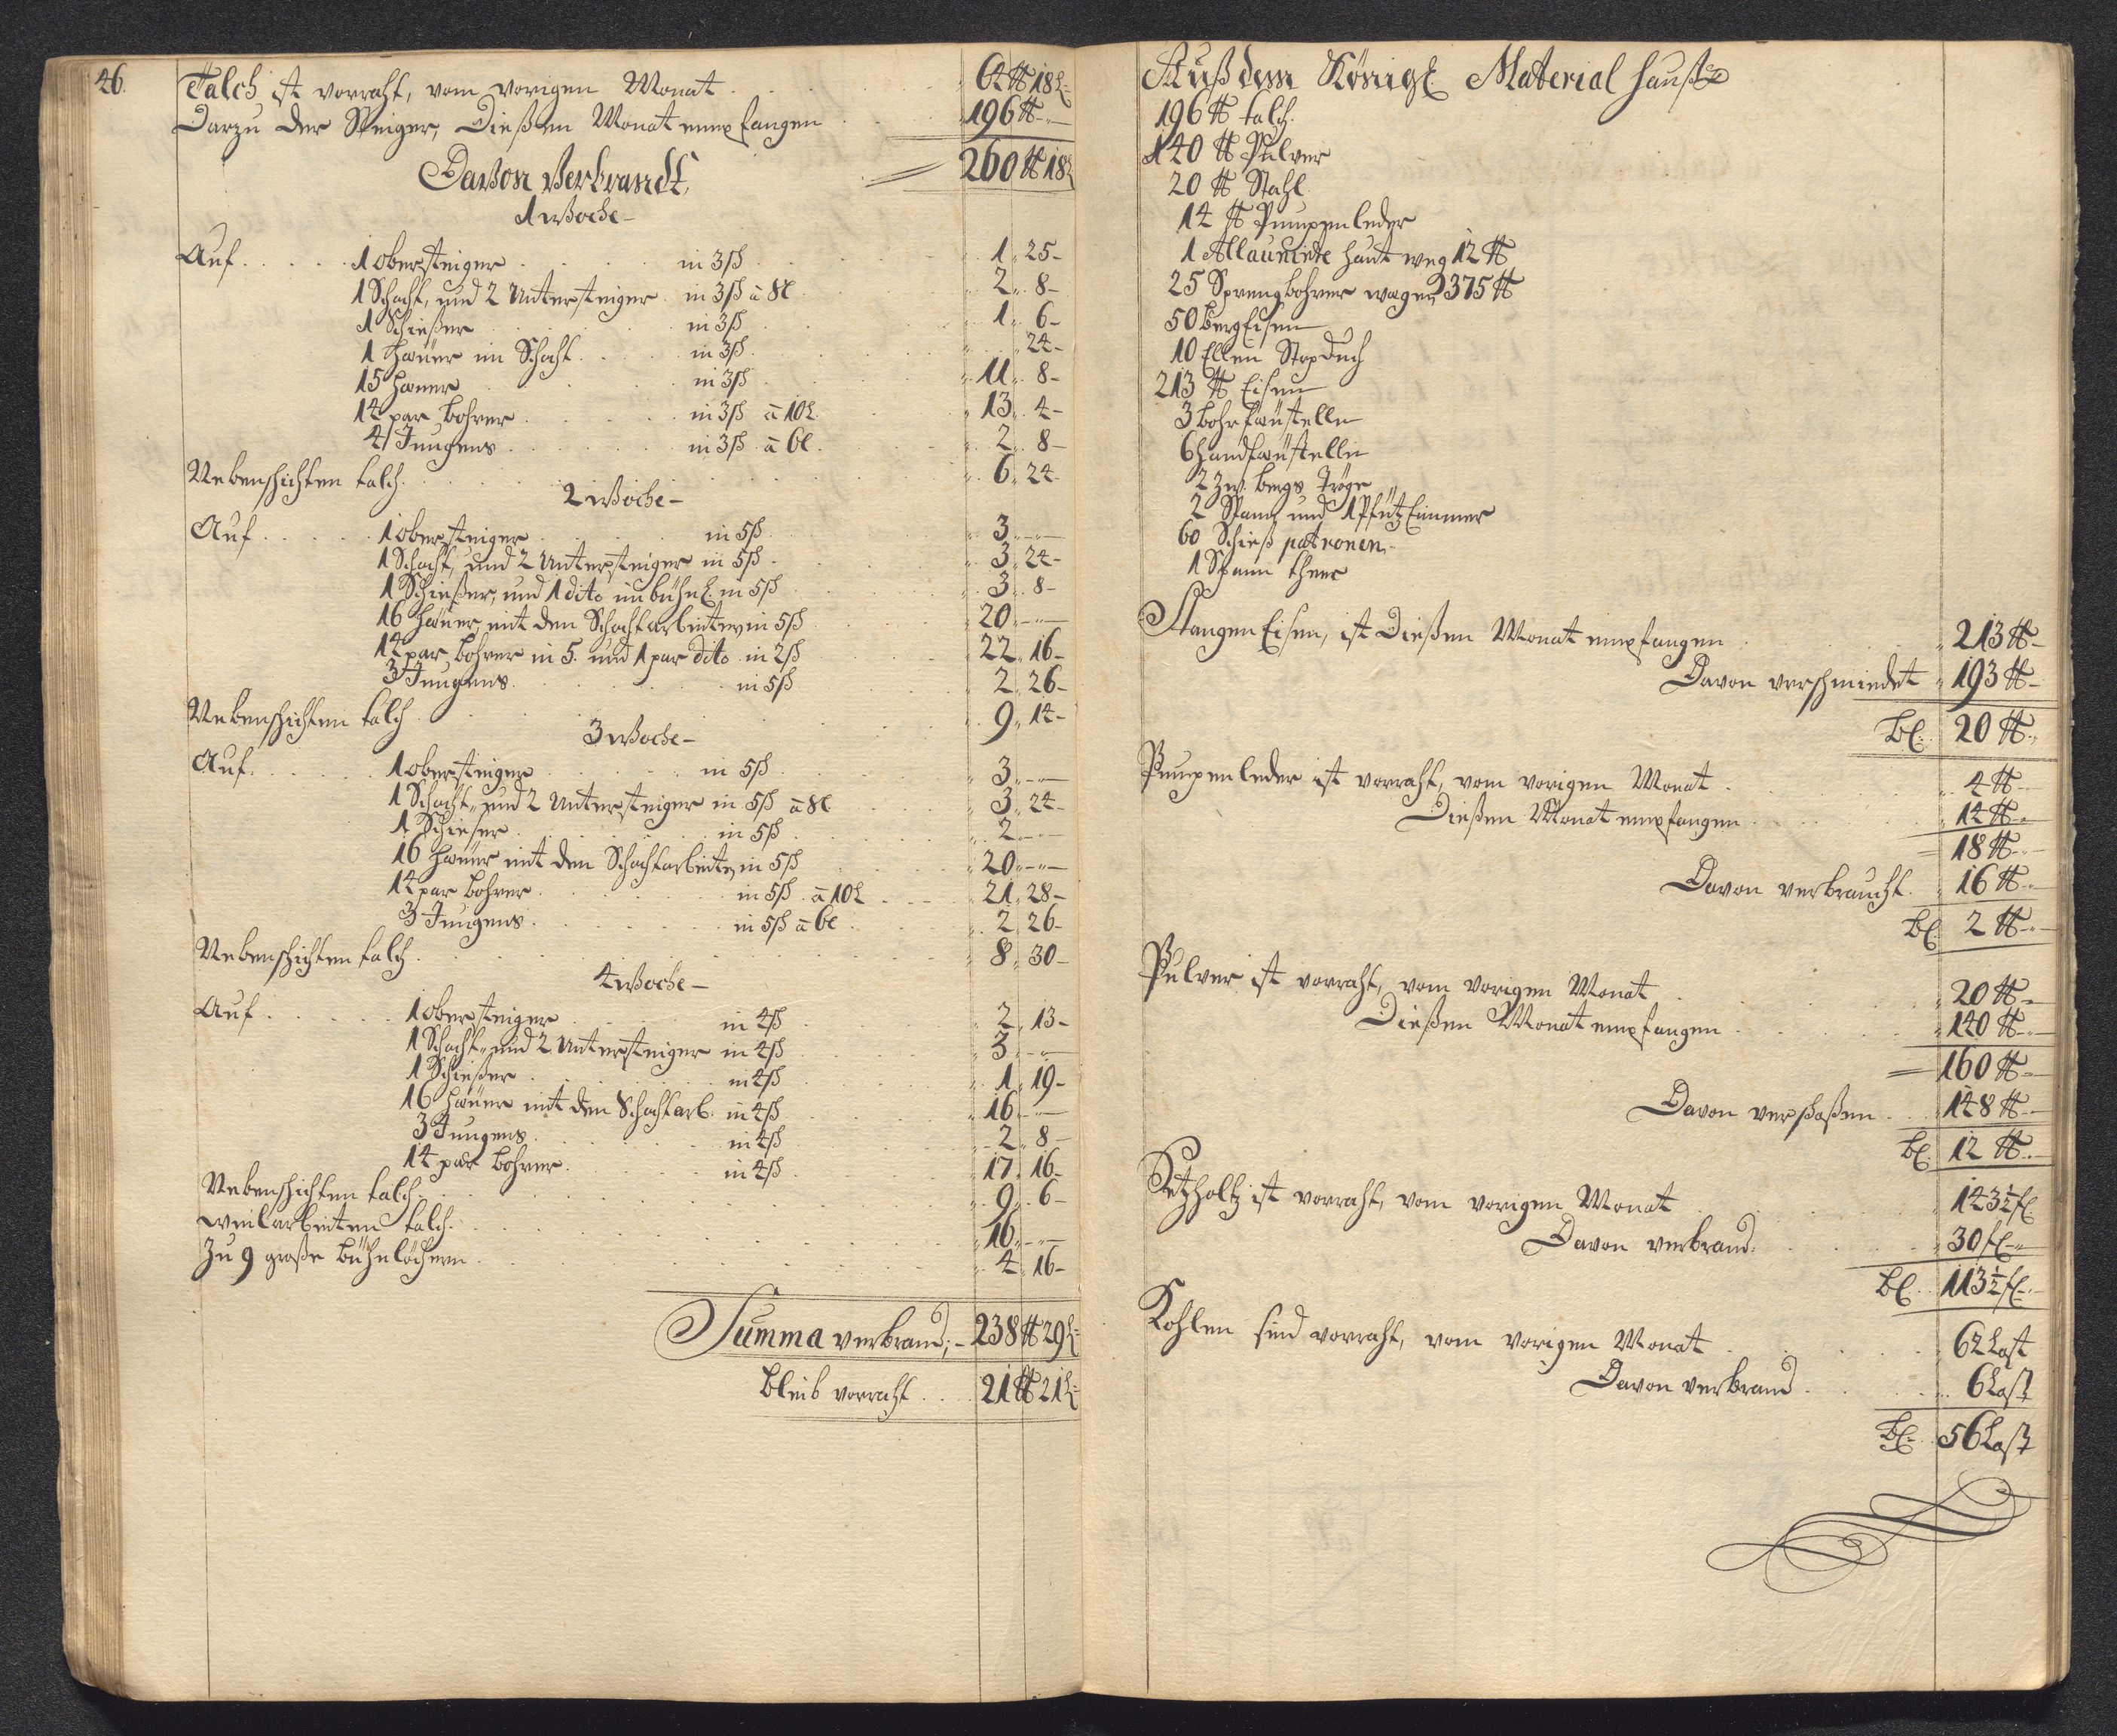 46.
Talch ist vorraht, vom vorigen Monat . . . 64 ℔ 18 L
Darzu der Steiger, Dießen Monat empfangen . 196 ℔ -
Davon Verbrandt, = 260 ℔ 18 L
1 Woche -
Auf . . . . . 1 obersteiger . . . in 3 ß . . . 1 „ 25 -
1 Schacht, und 2 Untersteiger in 3 ß â 8 l . . 2 „ 8 -
1 Schießer . . . in 3 ß . . . 1 „ 6 -
1 Häuer im Schacht . . . in 3 ß . . . „ 24 -
15 Häuer . . . in 3 ß . . . 11 „ 8 -
14 par Bohrer . . . in 3 ß â 10 L . . . 13 „ 4 -
4 Jungens . . . in 3 ß â 6 l . . . 2 „ 8 -
Nebenschichten talch . . . 6 „ 24 -
2 Woche -
Auf . . . . . 1 obersteiger . . . in 5 ß . . . 3 „ -
1 Schacht, und 2 Untersteiger in 5 ß . . . 3 „ 24 -
1 Schießer, und 1 dito im bühnl. in 5 ß . . . 3 „ 8 -
16 Häuer, mit den Schachtarbeiter, in 5 ß . . . 20 „ -
14 par Bohrer in 5. und 1 par dito in 2 ß . . . 22 „ 16 -
3 Jungens . . . in 5 ß . . . 2 „ 26 -
Nebenschichten talch . . . 9 „ 14 -
3 Woche -
Auf . . . . . 1 obersteiger . . . in 5 ß . . . 3 „ -
1 Schacht, und 2 Untersteiger in 5 ß â 8 l . . . 3 „ 24 -
1 Schießer . . . in 5 ß . . . 2 „ -
16 Häuer mit den Schachtarbeiter, in 5 ß . . . 20 „ -
14 par Bohrer . . . in 5 ß . â 10 L . . . 21 „ 28 -
3 Jungens . . . in 5 ß â 6 l . . . 2 „ 26 -
Nebenschichten talch . . . 8 „ 30 -
4 Woche -
Auf . . . . . 1 obersteiger . . . in 4 ß . . . 2 „ 13 -
1 Schacht, und 2 Untersteiger in 4 ß . . . 3 „ -
1 Schießer . . . in 4 ß . . . 1 „ 19 -
16 Häuer mit den Schachtarb. in 4 ß . . . 16 „ -
3 Jungens . . . in 4 ß . . . 2 „ 8 -
14 par Bohrer . . . in 4 ß . . . 17 „ 16 -
Nebenschichten talch . . . 9 „ 6 -
weilarbeiten talch . . . 16 „ -
Zu 9 große bühnlöchern . . . 4 „ 16 -
Summa verbrand; - 238 ℔ 29 L
bleib vorraht . . . 21 ℔ 21 L
Auß dem Königl. Material Hauße
196 ℔ talch.
140 ℔ Pulver
20 ℔ Stahl
14 ℔ Pumpenleder
1 Allaunirte Haut weg 12 ℔
25 Sprengbohrer wagen 375 ℔
50 BergEisen
10 Ellen Stopduch
213 ℔ Eisen
3 Bohrfäustelln
6 Handfäustelln
2 Zw. Bergs Tröge
2 Spann und 1 PfützEimmer
60 Schieß patronen.
1 Spann theer
StangenEisen, ist Dießen Monat empfangen . . . 213 ℔ -
Davon verschmiedet 193 ℔ -
bl. 20 ℔ -
Pumpenleder ist vorraht, vom vorigen Monat . . . 4 ℔ -
Dießen Monat empfangen . . . 14 ℔ -
18 ℔ -
Davon verbraucht . 16 ℔ -
bl. 2 ℔ -
Pulver ist vorraht, vom vorigen Monat . . . 20 ℔ -
Dießen Monat empfangen . . . 140 ℔ -
= 160 ℔ -
Davon verschoßen . . . 148 ℔ -
bl. 12 ℔ -
Setzholtz ist vorraht, vom vorigen Monat . . . 143½ fl.
Davon verbrand . . . 30 fl. -
bl. 113½ fl. -
Kohlen sind vorraht, vom vorigen Monat . . . 62 Last
Davon verbrand . . . 6 Last
bl. 56 Last